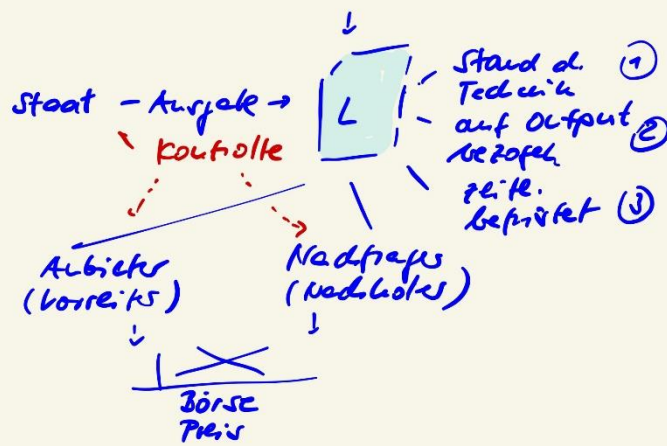 Staat – Ausgabe →
L
Kontrolle
Stand d. ①
Technik
auf Output ②
bezogen
zeitl.
befristet ③
Anbieter
(Vorreiter)
Nachfrager
(Nachholer)
Börse
Preis